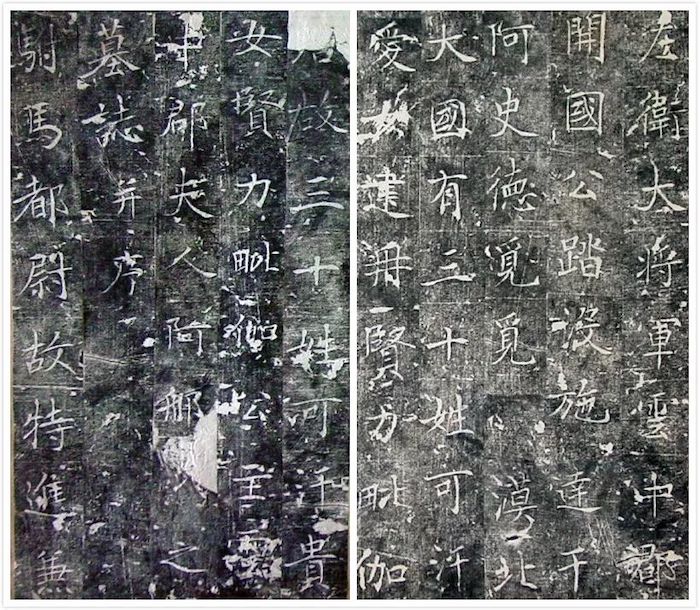 故三十姓可汗貴
女賢力毗伽公主雲
中郡夫人阿那之
墓誌并序
駙馬都尉故特進兼
左衛大將軍雲中郡
開國公踏沒施達干
阿史德覓覓 漠北
大國有三十姓可汗
愛女建冊賢力毗伽